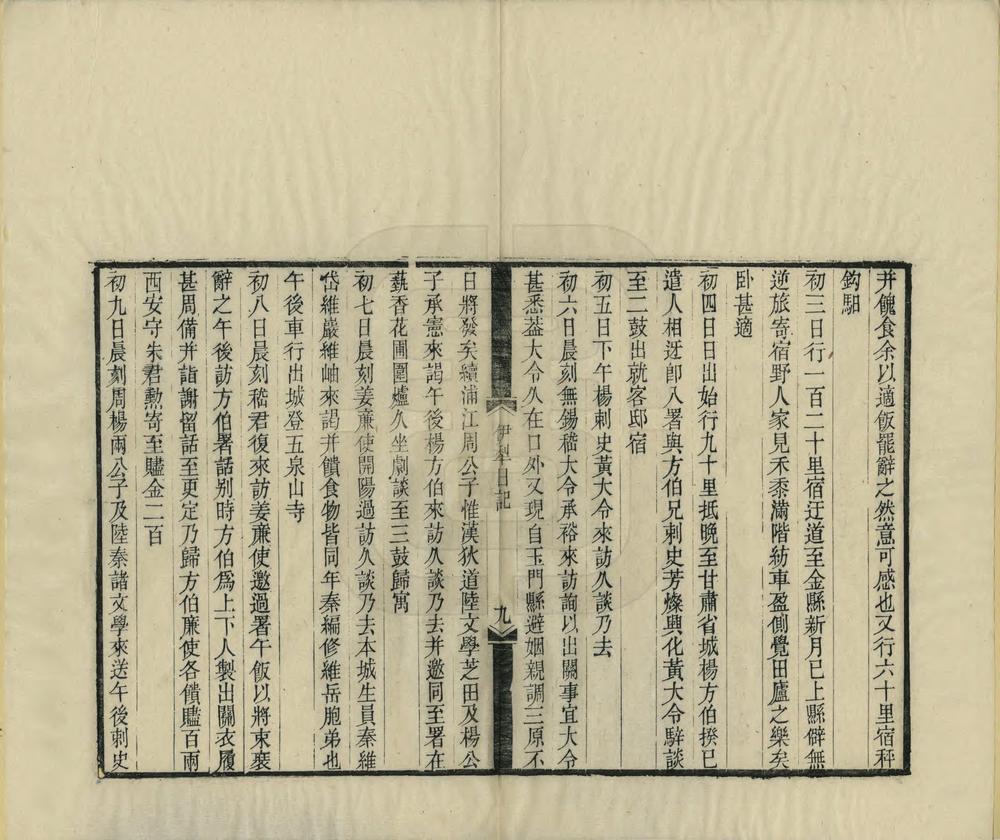 并餽食余以適飯罷辭之然意可感也又行六十里宿秤
鈎馹
初三日行一百二十里宿迂道至金縣新月已上縣僻無
逆旅寄宿野人家見禾黍滿階紡車盈側覺田廬之樂矣
卧甚適
初四日日出始行九十里抵晚至甘肅省城楊方伯揆已
遣人相迓卽入署與方伯兄刺史芳燦興化黃大令騂談
至二鼓出就客邸宿
初五日下午楊刺史黃大令來訪久談乃去
初六日晨刻無錫嵇大令承裕來訪詢以出關事宜大令
甚悉葢大令久在口外又現自玉門縣避姻親調三原不
伊犁日記
九
日將發矣續浦江周公子惟漢狄道陸文學芝田及楊公
子承憲來謁午後楊方伯來訪久談乃去并邀同至署在
蓺香花圃圍爐久坐劇談至三鼓歸寓
初七日晨刻姜亷使開陽過訪久談乃去本城生員秦維
岱維巖維岫來謁并饋食物皆同年秦編修維岳胞弟也
午後車行出城登五泉山寺
初八日晨刻嵇君復來訪姜亷使邀過署午飯以將束裝
辭之午後訪方伯署話別時方伯爲上下人製出關衣履
甚周備并詣謝留話至更定乃歸方伯亷使各饋贐百兩
西安守朱君勳寄至贐金二百
初九日晨刻周楊兩公子及陸秦諸文學來送午後刺史